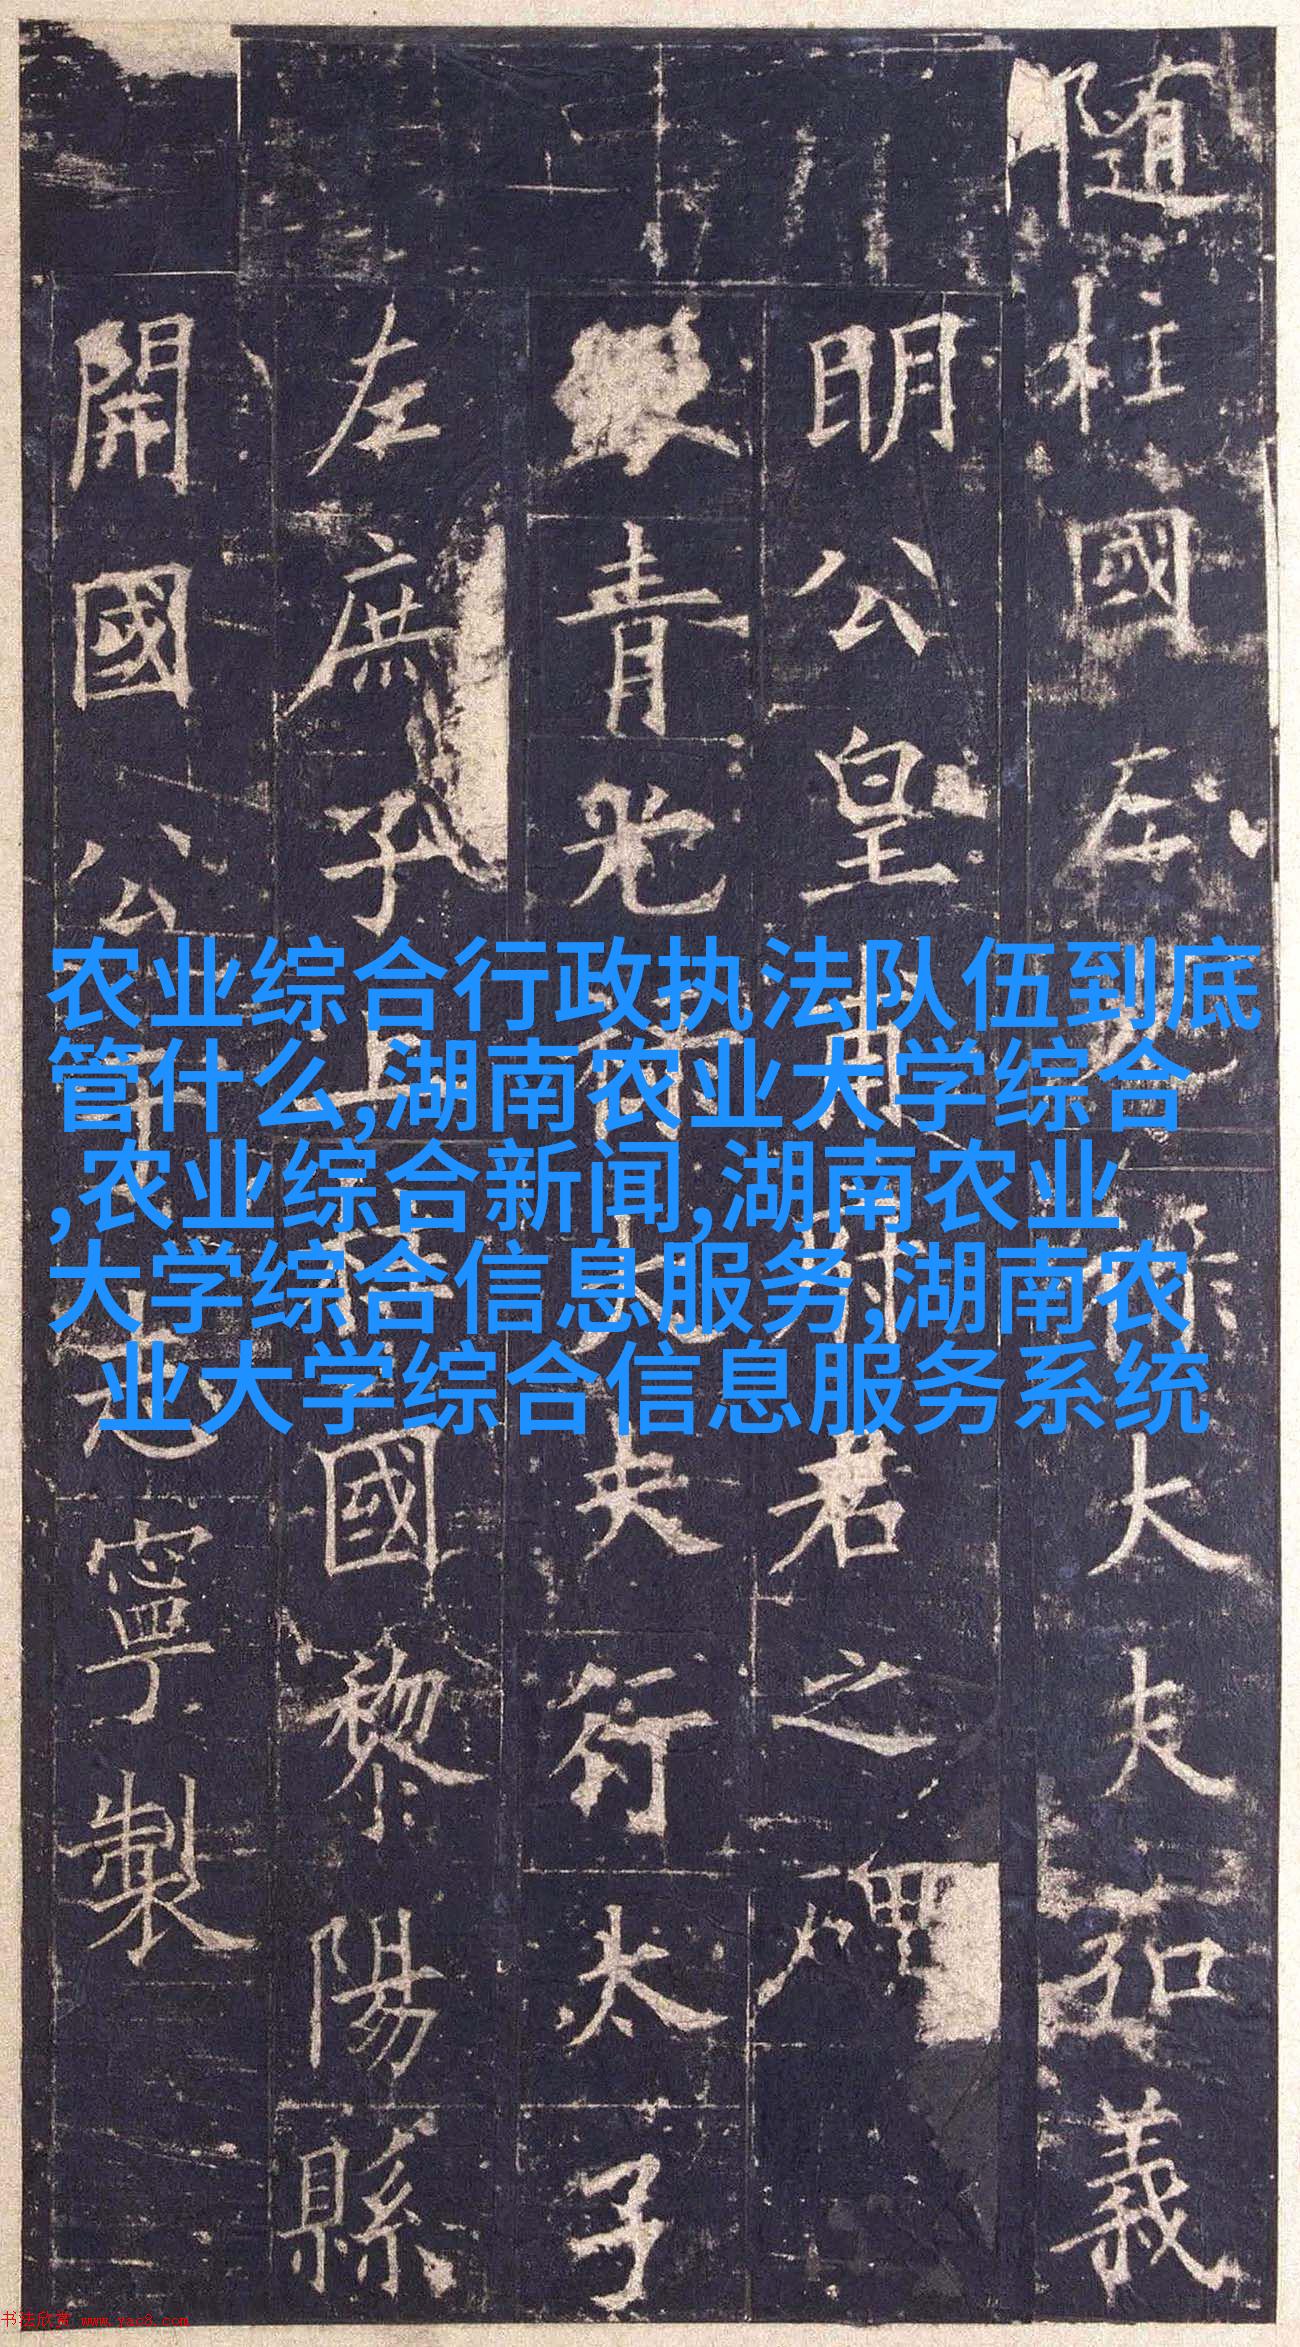 随柱國左光祿大夫弘義
明公皇甫府君之碑
銀青光祿大夫行太子
左庶子上柱國黎陽縣
開國公于志寧製
农业综合行政执法队伍到底
管什么,湖南农业大学综合
,农业综合新闻,湖南农业
大学综合信息服务,湖南农
业大学综合信息服务系统
书法欣赏 www.yac8.com